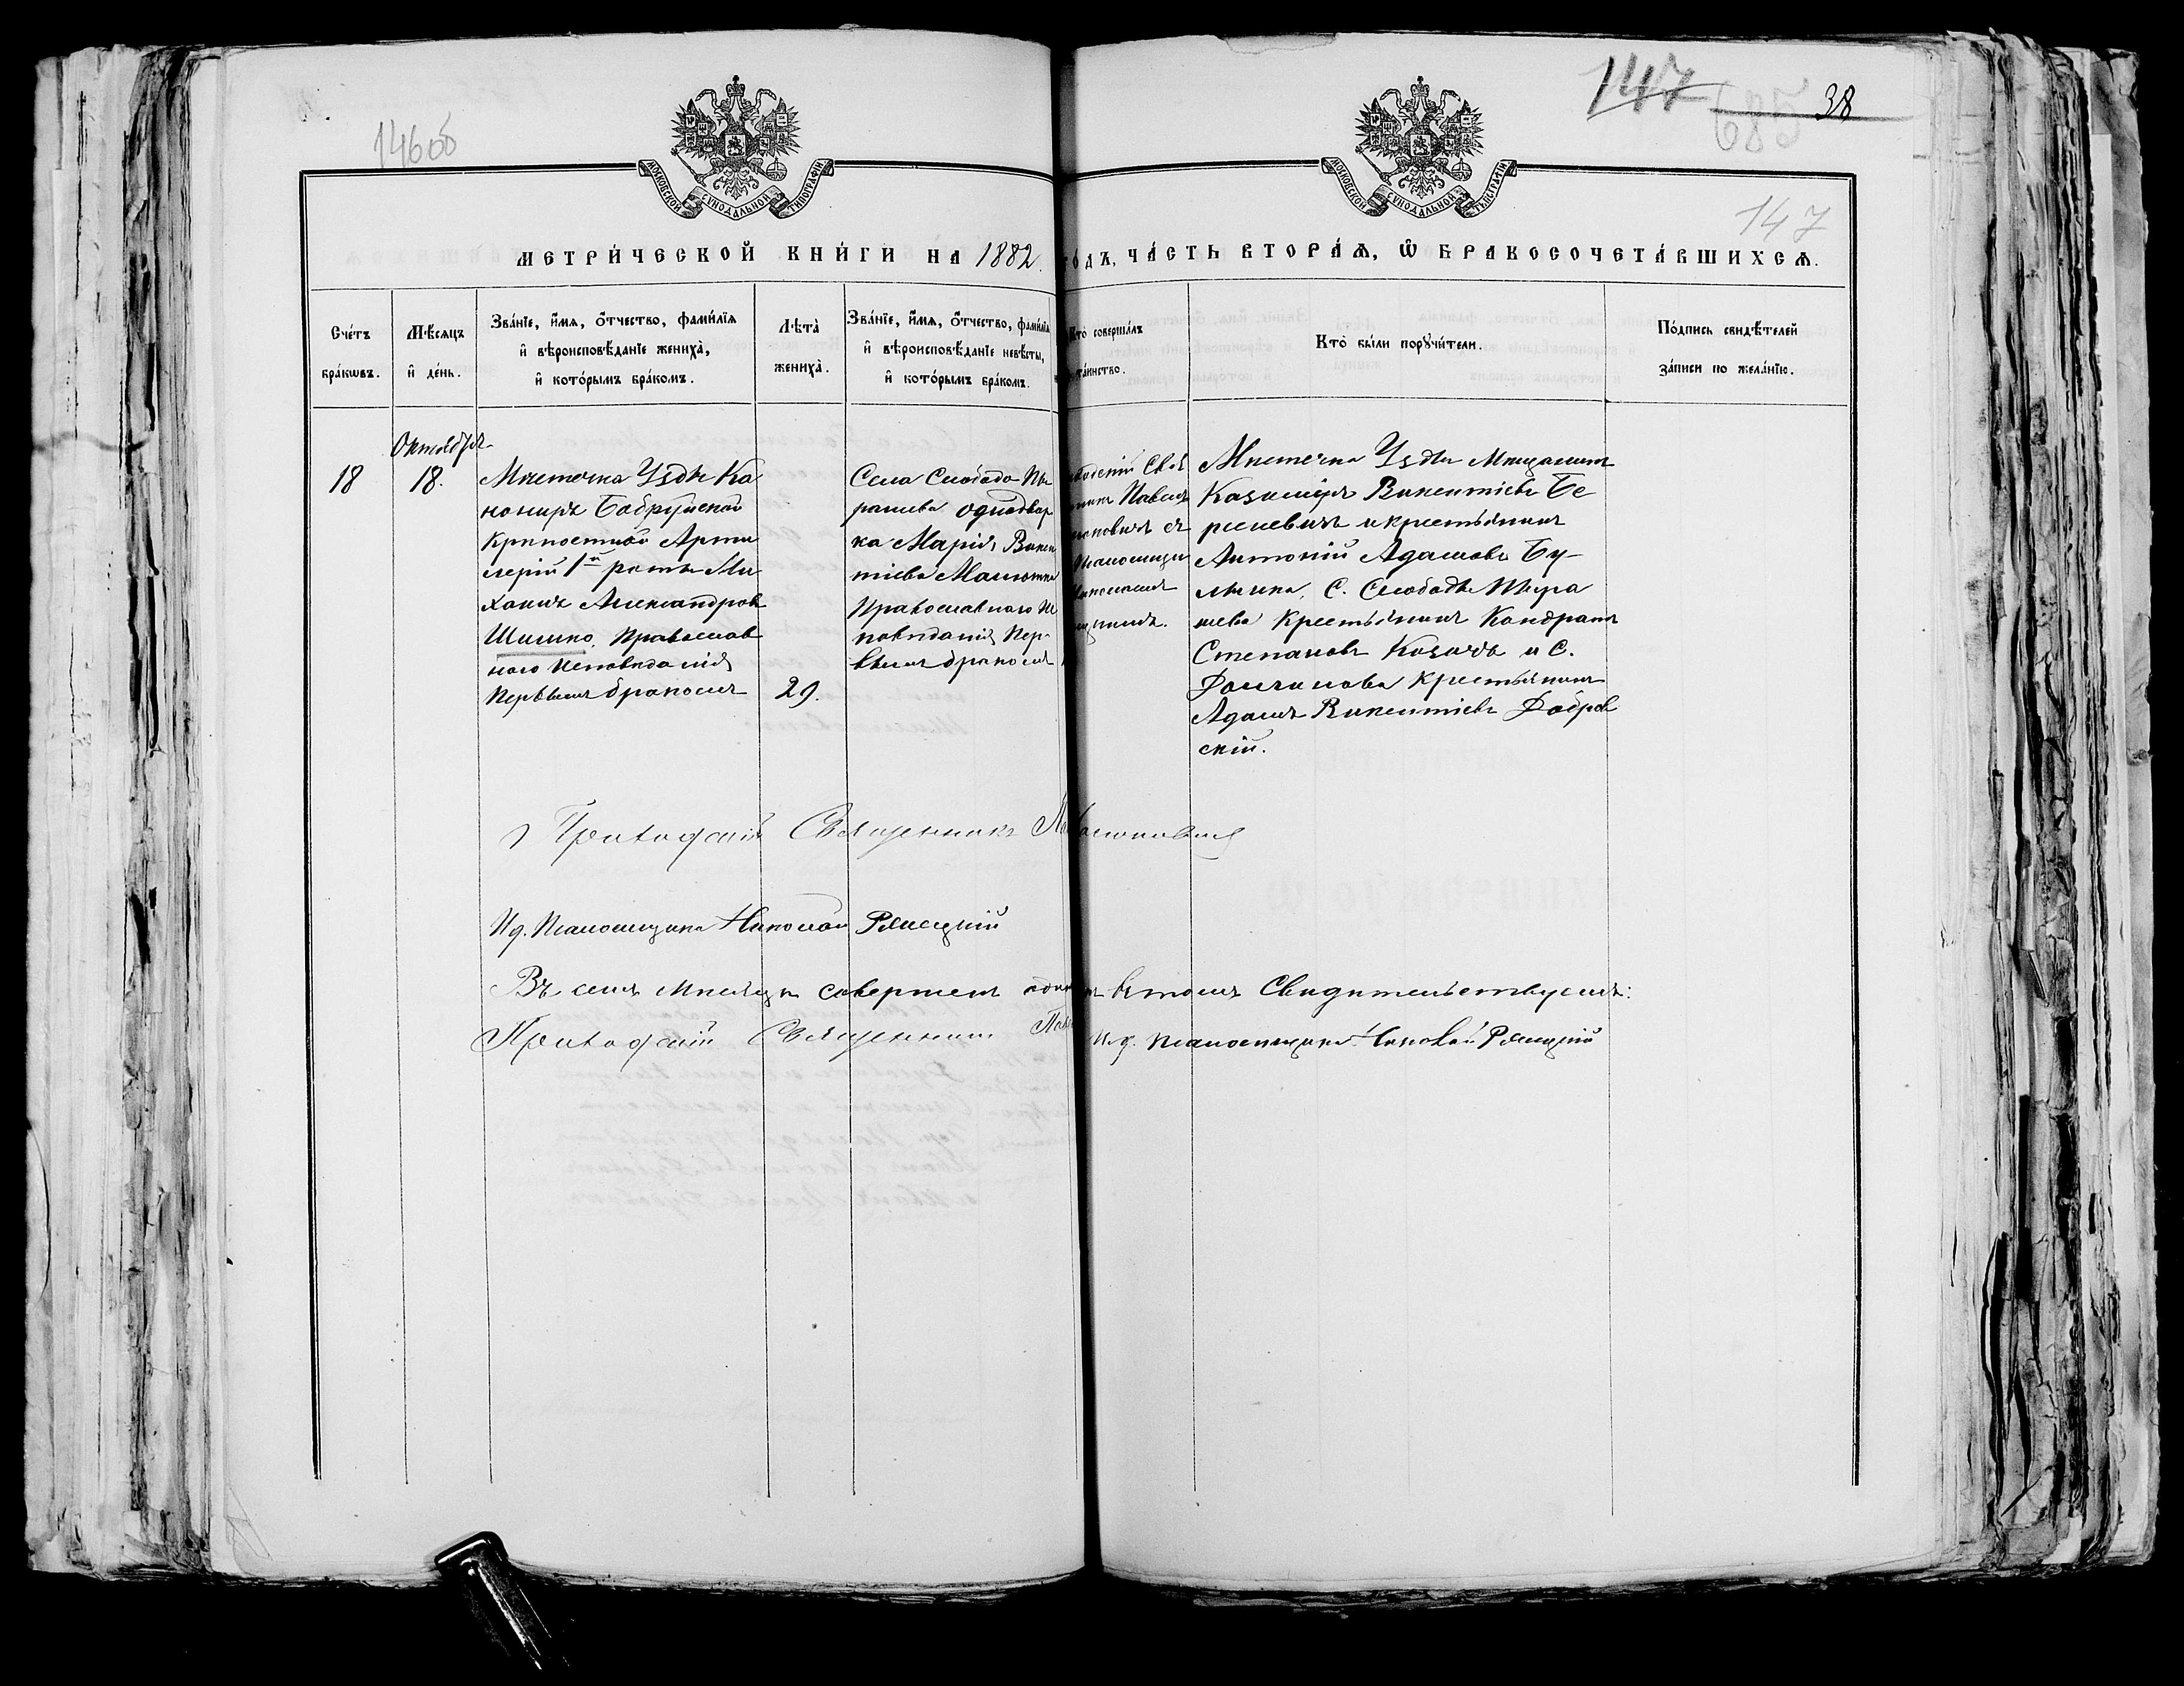 146об
147
685
38
147
МОСКОВСКОЙ СѴНОДАЛЬНОЙ ТИПОГРАФІИ
МОСКОВСКОЙ СѴНОДАЛЬНОЙ ТИПОГРАФІИ
МЕТРИ́ЧЕСКОЙ КНИ́ГИ НА 1882
го́дъ, ЧА́СТЬ ВТОРА́Ѧ, Ѽ БРАКОСОЧЕТА́ВШИХСѦ.
Сче́тъ
бра́кѡвъ.
Мѣ́сяцъ
и҆ де́нь.
Зва́нїе, и҆́мя, о҆́тчество, фами́лїя
и҆ вѣроисповѣ́данїе жениха̀,
и҆ кото́рымъ бра́комъ.
Лѣта̀
жениха̀.
Зва́нїе, и҆́мя, о҆́тчество, фами́лїя
и҆ вѣроисповѣ́данїе невѣ́сты,
и҆ кото́рымъ бра́комъ.
Кто̀ соверша́лъ
та́инство.
Кто̀ бы́ли порꙋчи́тели.
По́дпись свидѣ́телей
за́писи по жела́нїю.
18
Октября
18.
Мѣстечка Узды Ка
нониръ Бобруйской
Крѣпостной Арти
лерій 1й роты Ми
хаилъ Александровъ
Шишко, Православ
наго Исповѣданія
Первымъ бракомъ
29.
Села Слободо-Пы
рашева однодвор
ка Марія Викен
тіева
Православнаго И
повѣданія Пер-
вымъ бракомъ
Свя
Павелъ
съ
Псаломщи
Николаемъ
Мѣстечка Узды Мѣщанинъ
Казиміръ Викентіевъ Бе
рсневичъ и крестьянинъ
Антоній Адамовъ Бу-
С. Слободы Пыра
шева Крестьянинъ Кондратъ
Степановъ Козачъ и С.
Крестьянинъ
Адамъ Викентіевъ Добров
скій.
Приходскій Священникъ
Ид. Псаломщика Николай
Въ семъ мѣсяцѣ совершенъ одинъ въ томъ Свидѣтельствуемъ:
Приходскій Священникъ
И.д. псаломщика Николай